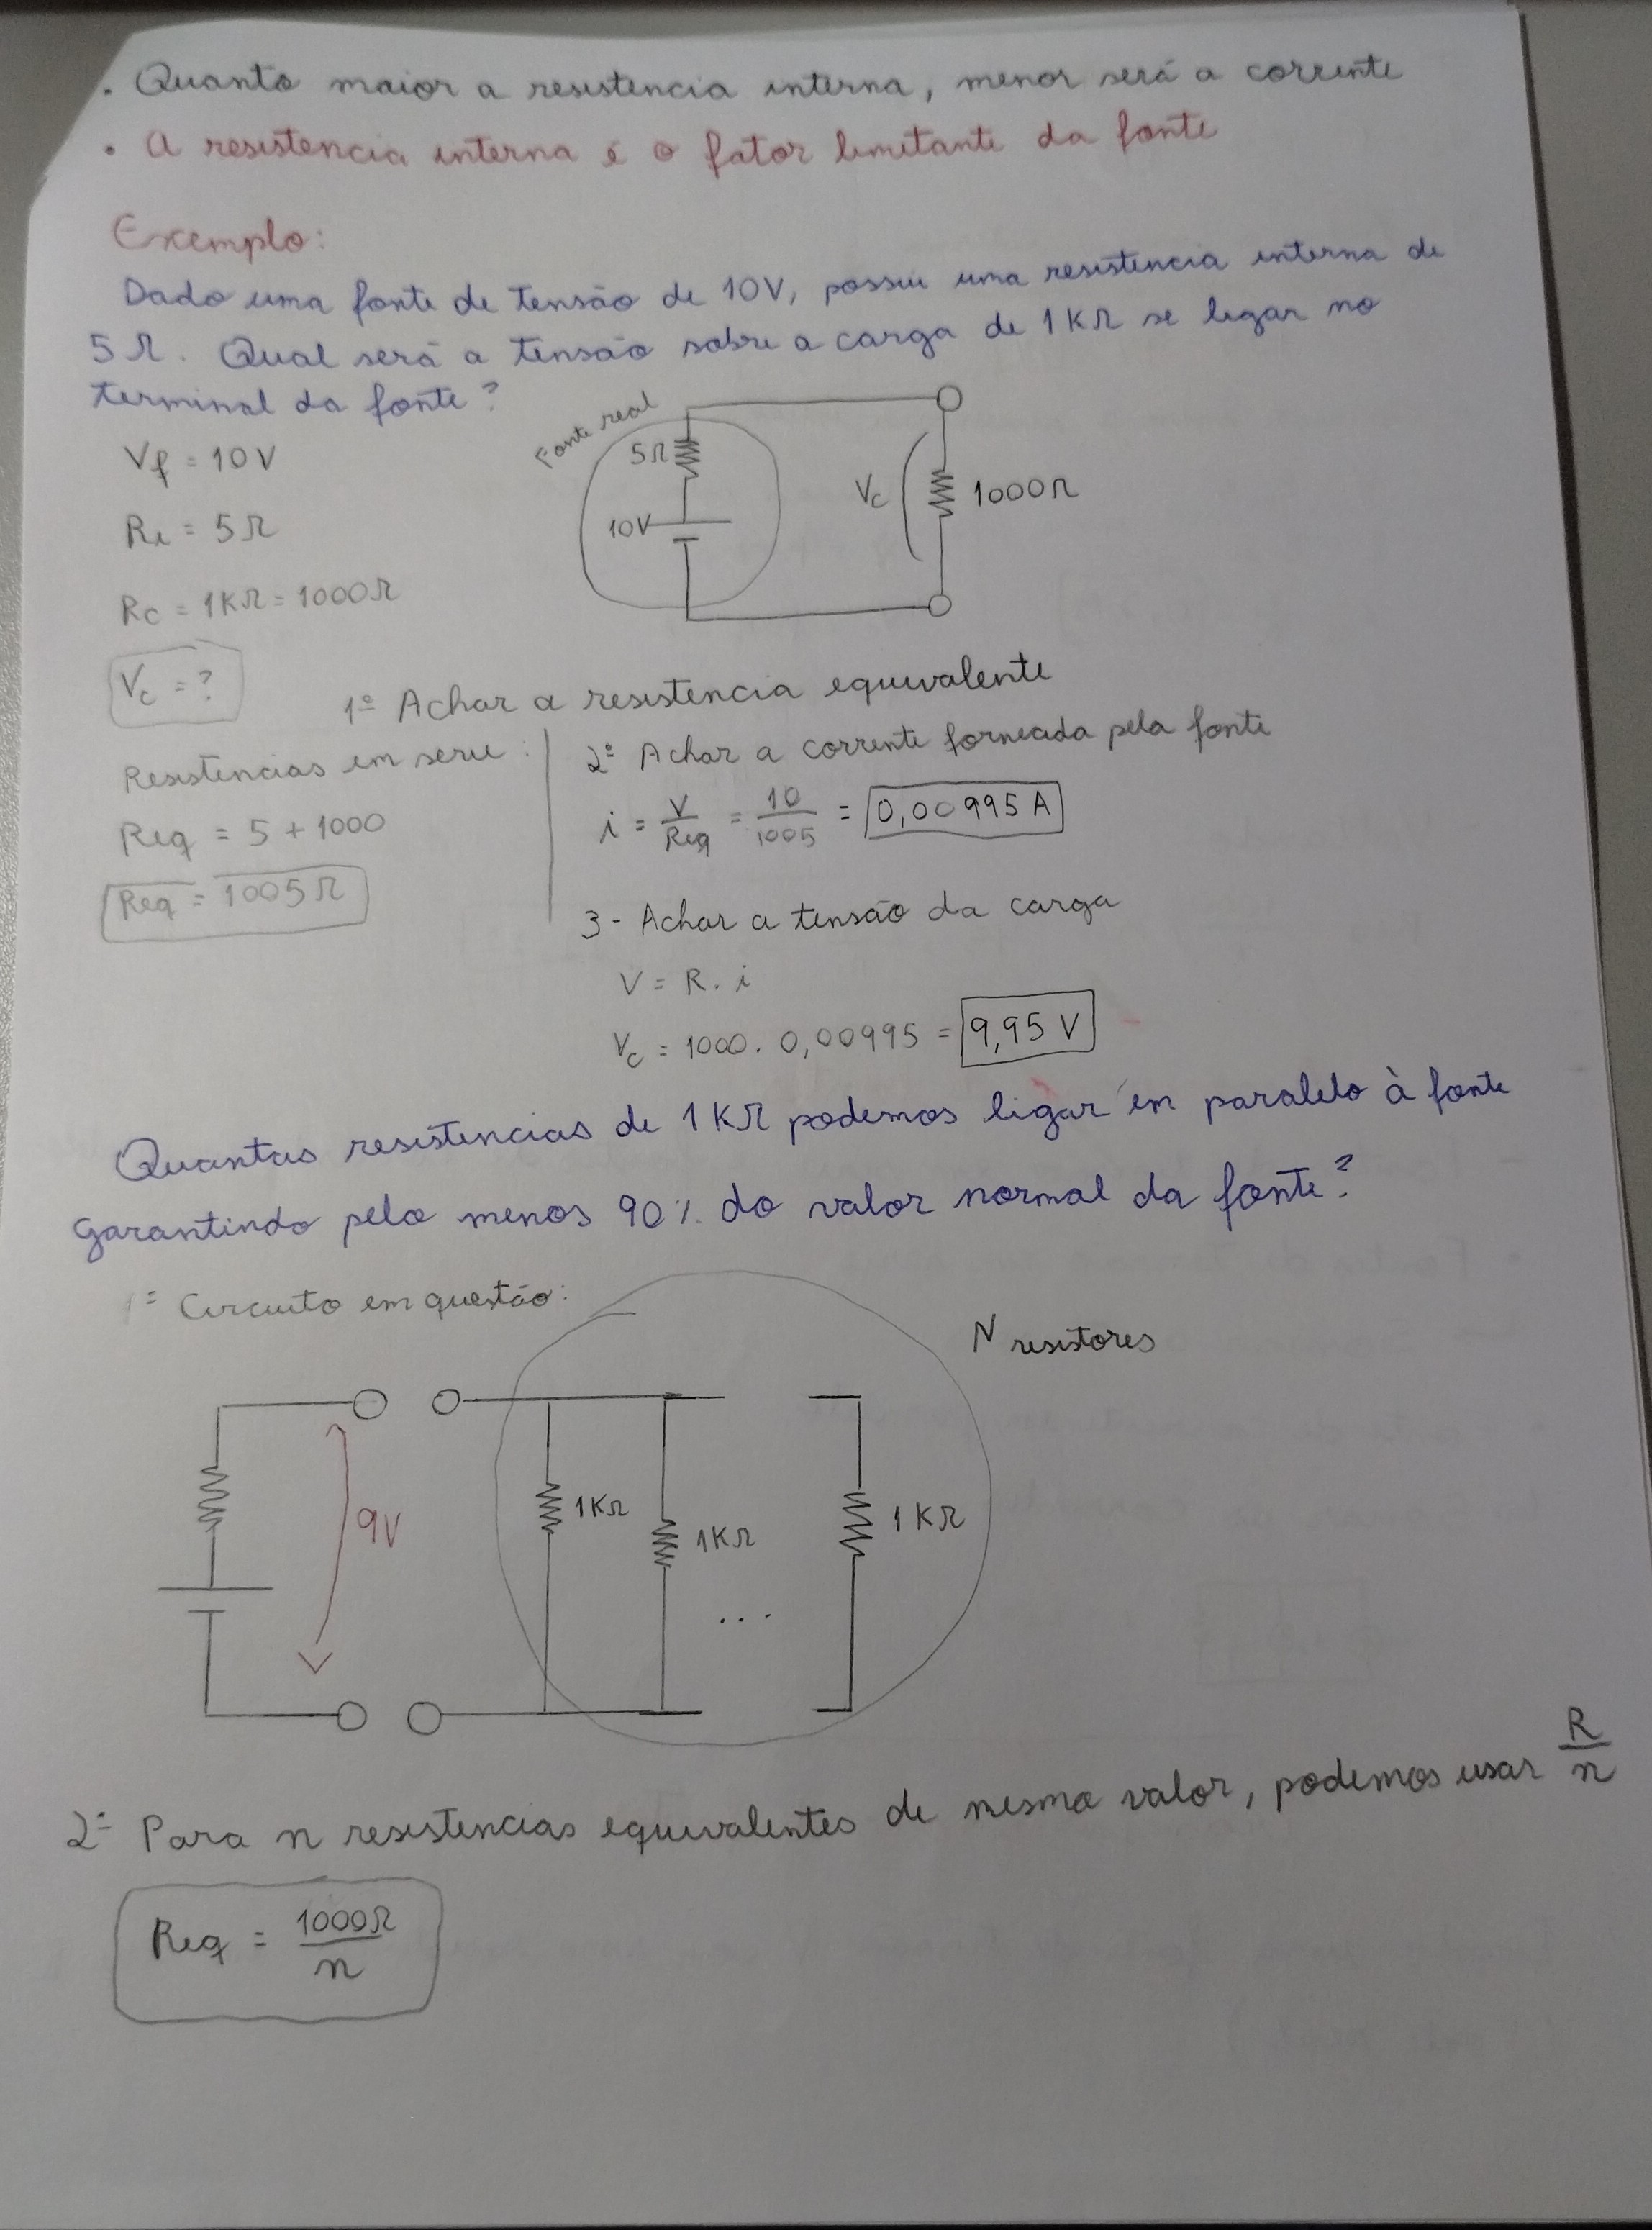 . Quanto maior a resistencia interna, menor será a corrente
. A resistencia interna é o fator limitante da fonte
Exemplo:
Dado uma fonte de tensão de 10V, possui uma resistencia interna de
5Ω. Qual será a tensão sobre a carga de 1KΩ se ligar no
terminal da fonte?
Fonte real
5Ω
10V
Vc
1000Ω
Vf = 10V
Ri = 5Ω
Rc = 1KΩ = 1000Ω
Vc = ?
1º Achar a resistencia equivalente
Resistencias em serie:
Req = 5 + 1000
Req = 1005Ω
2º Achar a corrente fornecida pela fonte
i = V/Req = 10/1005 = 0,00995 A
3- Achar a tensão da carga
V = R. i
Vc = 1000. 0,00995 = 9,95 V
Quantas resistencias de 1KΩ podemos ligar em paralelo à fonte
garantindo pelo menos 90% do valor normal da fonte?
1º Circuito em questão:
N resistores
9V
1KΩ
1KΩ
...
1KΩ
2º Para n resistencias equivalentes de mesmo valor, podemos usar R/n
Req = 1000Ω/n